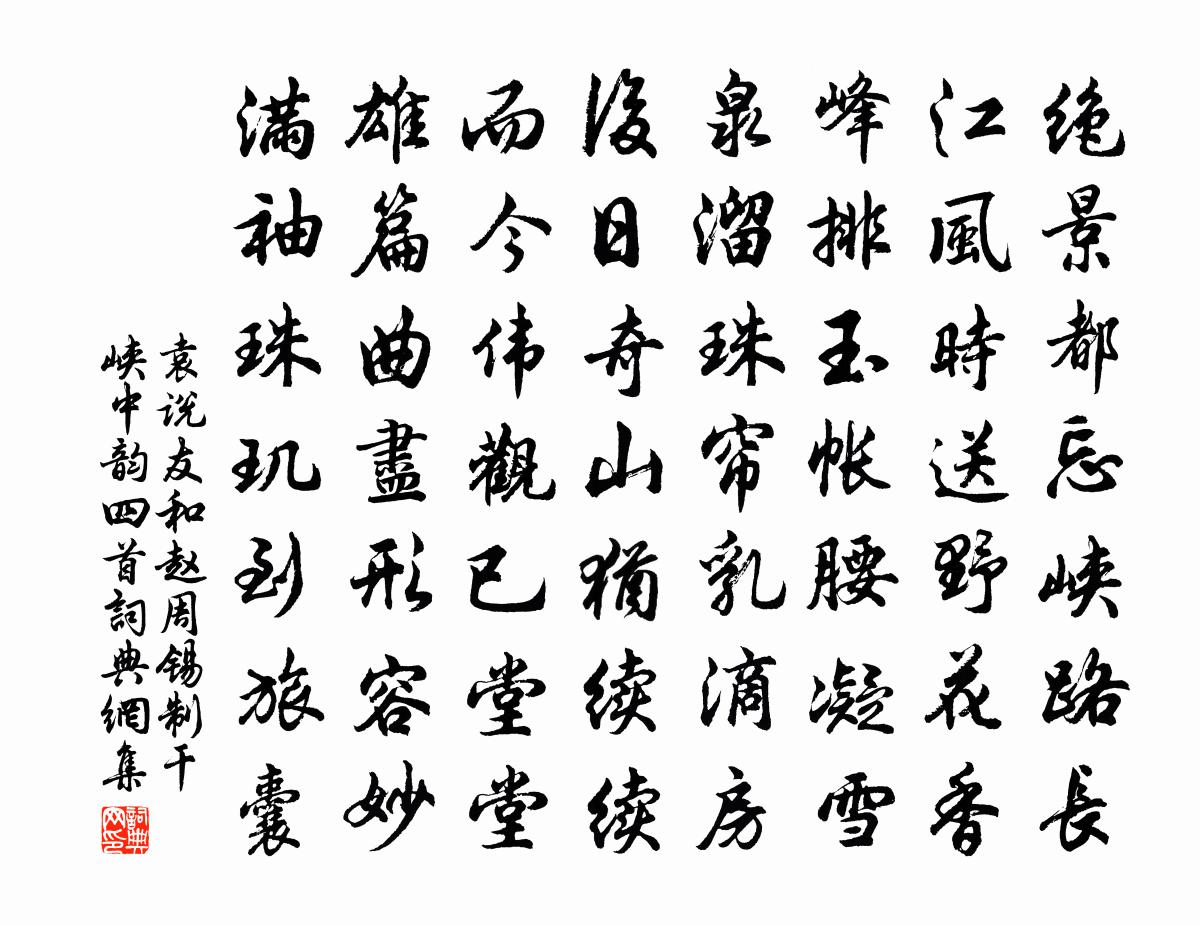 绝景都忘峡路长
江風時送野花香
峰排玉帐腰凝雪
泉溜珠帘乳滴房
後日奇山猶续续
而今伟觀已堂堂
雄篇曲盡形容妙
满袖珠玑到旅囊
袁说友和赵周锡制干
峡中韵四首詞典網集
詞典
网印